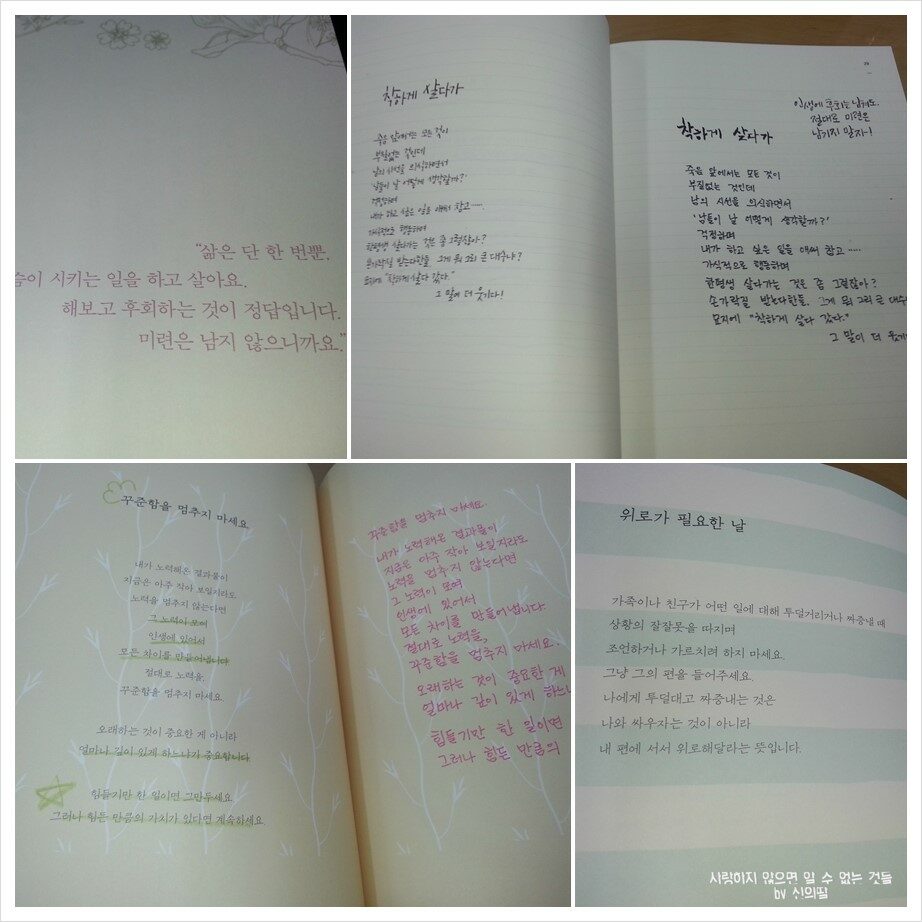 “삶은 단 한 번뿐,
슴이 시키는 일을 하고 살아요.
해보고 후회하는 것이 정답입니다.
미련은 남지 않으니까요.”
착하게 살다가
죽음 앞에서는 모든 것이
부질없는 것인데
남의 시선을 의식하면서
남들이 날 어떻게 생각할까?'
걱정하며
내가 하고 싶은 일을 애써 참고……
가식적으로 행동하며
한평생 살다가는 것은 좀 그렇잖아?
손가락질 받는다한들 그게 뭐 그리 큰 대수냐?
묘지에 "착하게 살다 갔다."
그 말이 더 웃기다!
인생에 후회는 남겨도.
절대로 미련은
남기지 말자!
착하게 살다가
죽음 앞에서는 모든 것이
부질없는 것인데
남의 시선을 의식하면서
'남들이 날 어떻게 생각할까?'
걱정하며
내가 하고 싶은 일을 애써 참고……
가식적으로 행동하며
한평생 살다가는 것은 좀 그렇잖아?
손가락질 받는다한들. 그게 뭐 그리 큰 대수
묘지에 "착하게 살다 갔다."
그 말이 더 웃기
꾸준함을 멈추지 마세요
내가 노력해온 결과물이
지금은 아주 작아 보일지라도
노력을 멈추지 않는다면
그 노력이 모여
인생에 있어서
모든 차이를 만들어냅니다
절대로 노력을,
꾸준함을 멈추지 마세요.
오래하는 것이 중요한 게 아니라
얼마나 깊이 있게 하느냐가 중요합니다
힘들기만 한 일이면 그만두세요.
그러나 힘든 만큼의 가치가 있다면 계속하세요.
꾸준함을 멈추지 마세요.
내가 노력해온 결과물이
지금은 아주 작아 보일지라도
노력을 멈추지 않는다면
그 노력이 모여
인생에 있어서
모든 차이를 만들어냅니다
절대로 노력을,
꾸준함을 멈추지 마세요.
오래하는 것이 중요한 게
얼마나 깊이 있게 하느냐
힘들기만 한 일이면
그러나 힘든 만큼의
위로가 필요한 날
가족이나 친구가 어떤 일에 대해 투덜거리거나 짜증낼 때
상황의 잘잘못을 따지며
조언하거나 가르치려 하지 마세요.
그냥 그의 편을 들어주세요.
나에게 투덜대고 짜증내는 것은
나와 싸우자는 것이 아니라
내 편에 서서 위로해달라는 뜻입니다.
사랑하지 않으면 알 수 없는 것들
by 신의딸